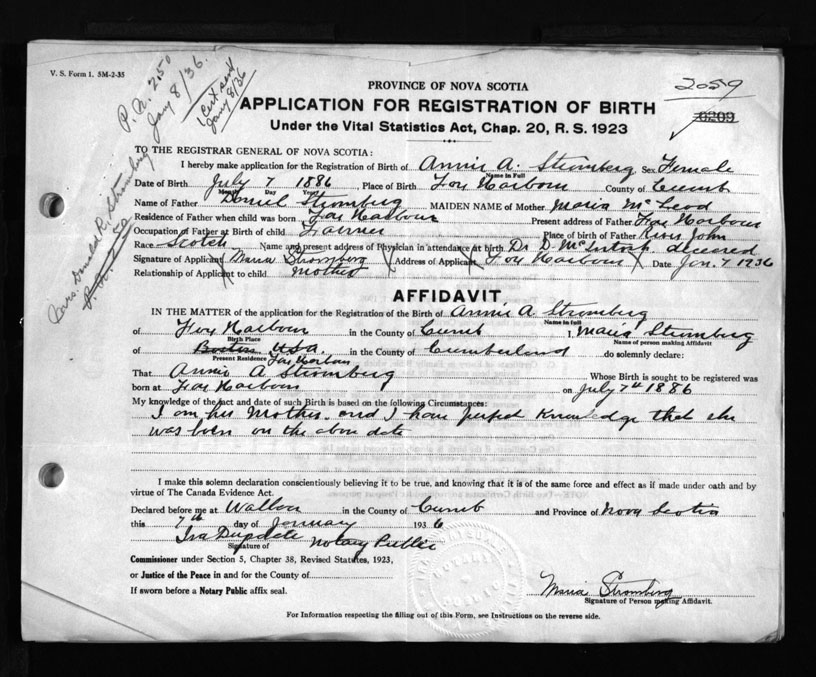 V. S. Form 1. 5M-2-35
P. N. 2.50
Jany 8/36
1 Cert. send
Jany 8/36
Donald R. Stromberg
2059
6209
PROVINCE OF NOVA SCOTIA
APPLICATION FOR REGISTRATION OF BIRTH
Under the Vital Statistics Act, Chap. 20, R. S. 1923
TO THE REGISTRAR GENERAL OF NOVA SCOTIA:
I hereby make application for the Registration of Birth of Annie A. Stromberg, Sex Female
Name in Full
Date of Birth July 7 1886, Place of Birth Fox Harbour County of Cumb
Month Day Year
Name of Father Daniel Stromberg MAIDEN NAME of Mother Maria McLeod
Residence of Father when child was born Fox Harbour Present address of Father Fox Harbour
Occupation of Father at Birth of child Farmer Place of birth of Father River John
Race Scotch Name and present address of Physician in attendance at birth Dr D. McIntosh deceased
Signature of Applicant Maria Stromberg Address of Applicant Fox Harbour Date Jan. 7 1936
Relationship of Applicant to child Mother
AFFIDAVIT
IN THE MATTER of the application for the Registration of the Birth of Annie A. Stromberg
Name in Full
of Fox Harbour in the County of Cumb I, Maria Stromberg
Birth Place Name of person making Affidavit
of Boston USA in the County of Cumberland do solemnly declare:
Present Residence Fox Harbour
That Annie A Stromberg Whose Birth is sought to be registered was
born at Fox Harbour on July 7th 1886
My knowledge of the fact and date of such Birth is based on the following Circumstances:
I am her Mother and I have perfect knowledge that she
was born on the above date
I make this solemn declaration conscientiously believing it to be true, and knowing that it is of the same force and effect as if made under oath and by
virtue of The Canada Evidence Act.
Declared before me at Wallace in the County of Cumb and Province of Nova Scotia
this 7th day of January 1936
Ira Dupdale Notary Public
Signature of
Commissioner under Section 5, Chapter 38, Revised Statutes, 1923,
or Justice of the Peace in and for the County of
If sworn before a Notary Public affix seal.
Maria Stromberg
Signature of Person making Affidavit.
For Information respecting the filling out of this Form, see Instructions on the reverse side.